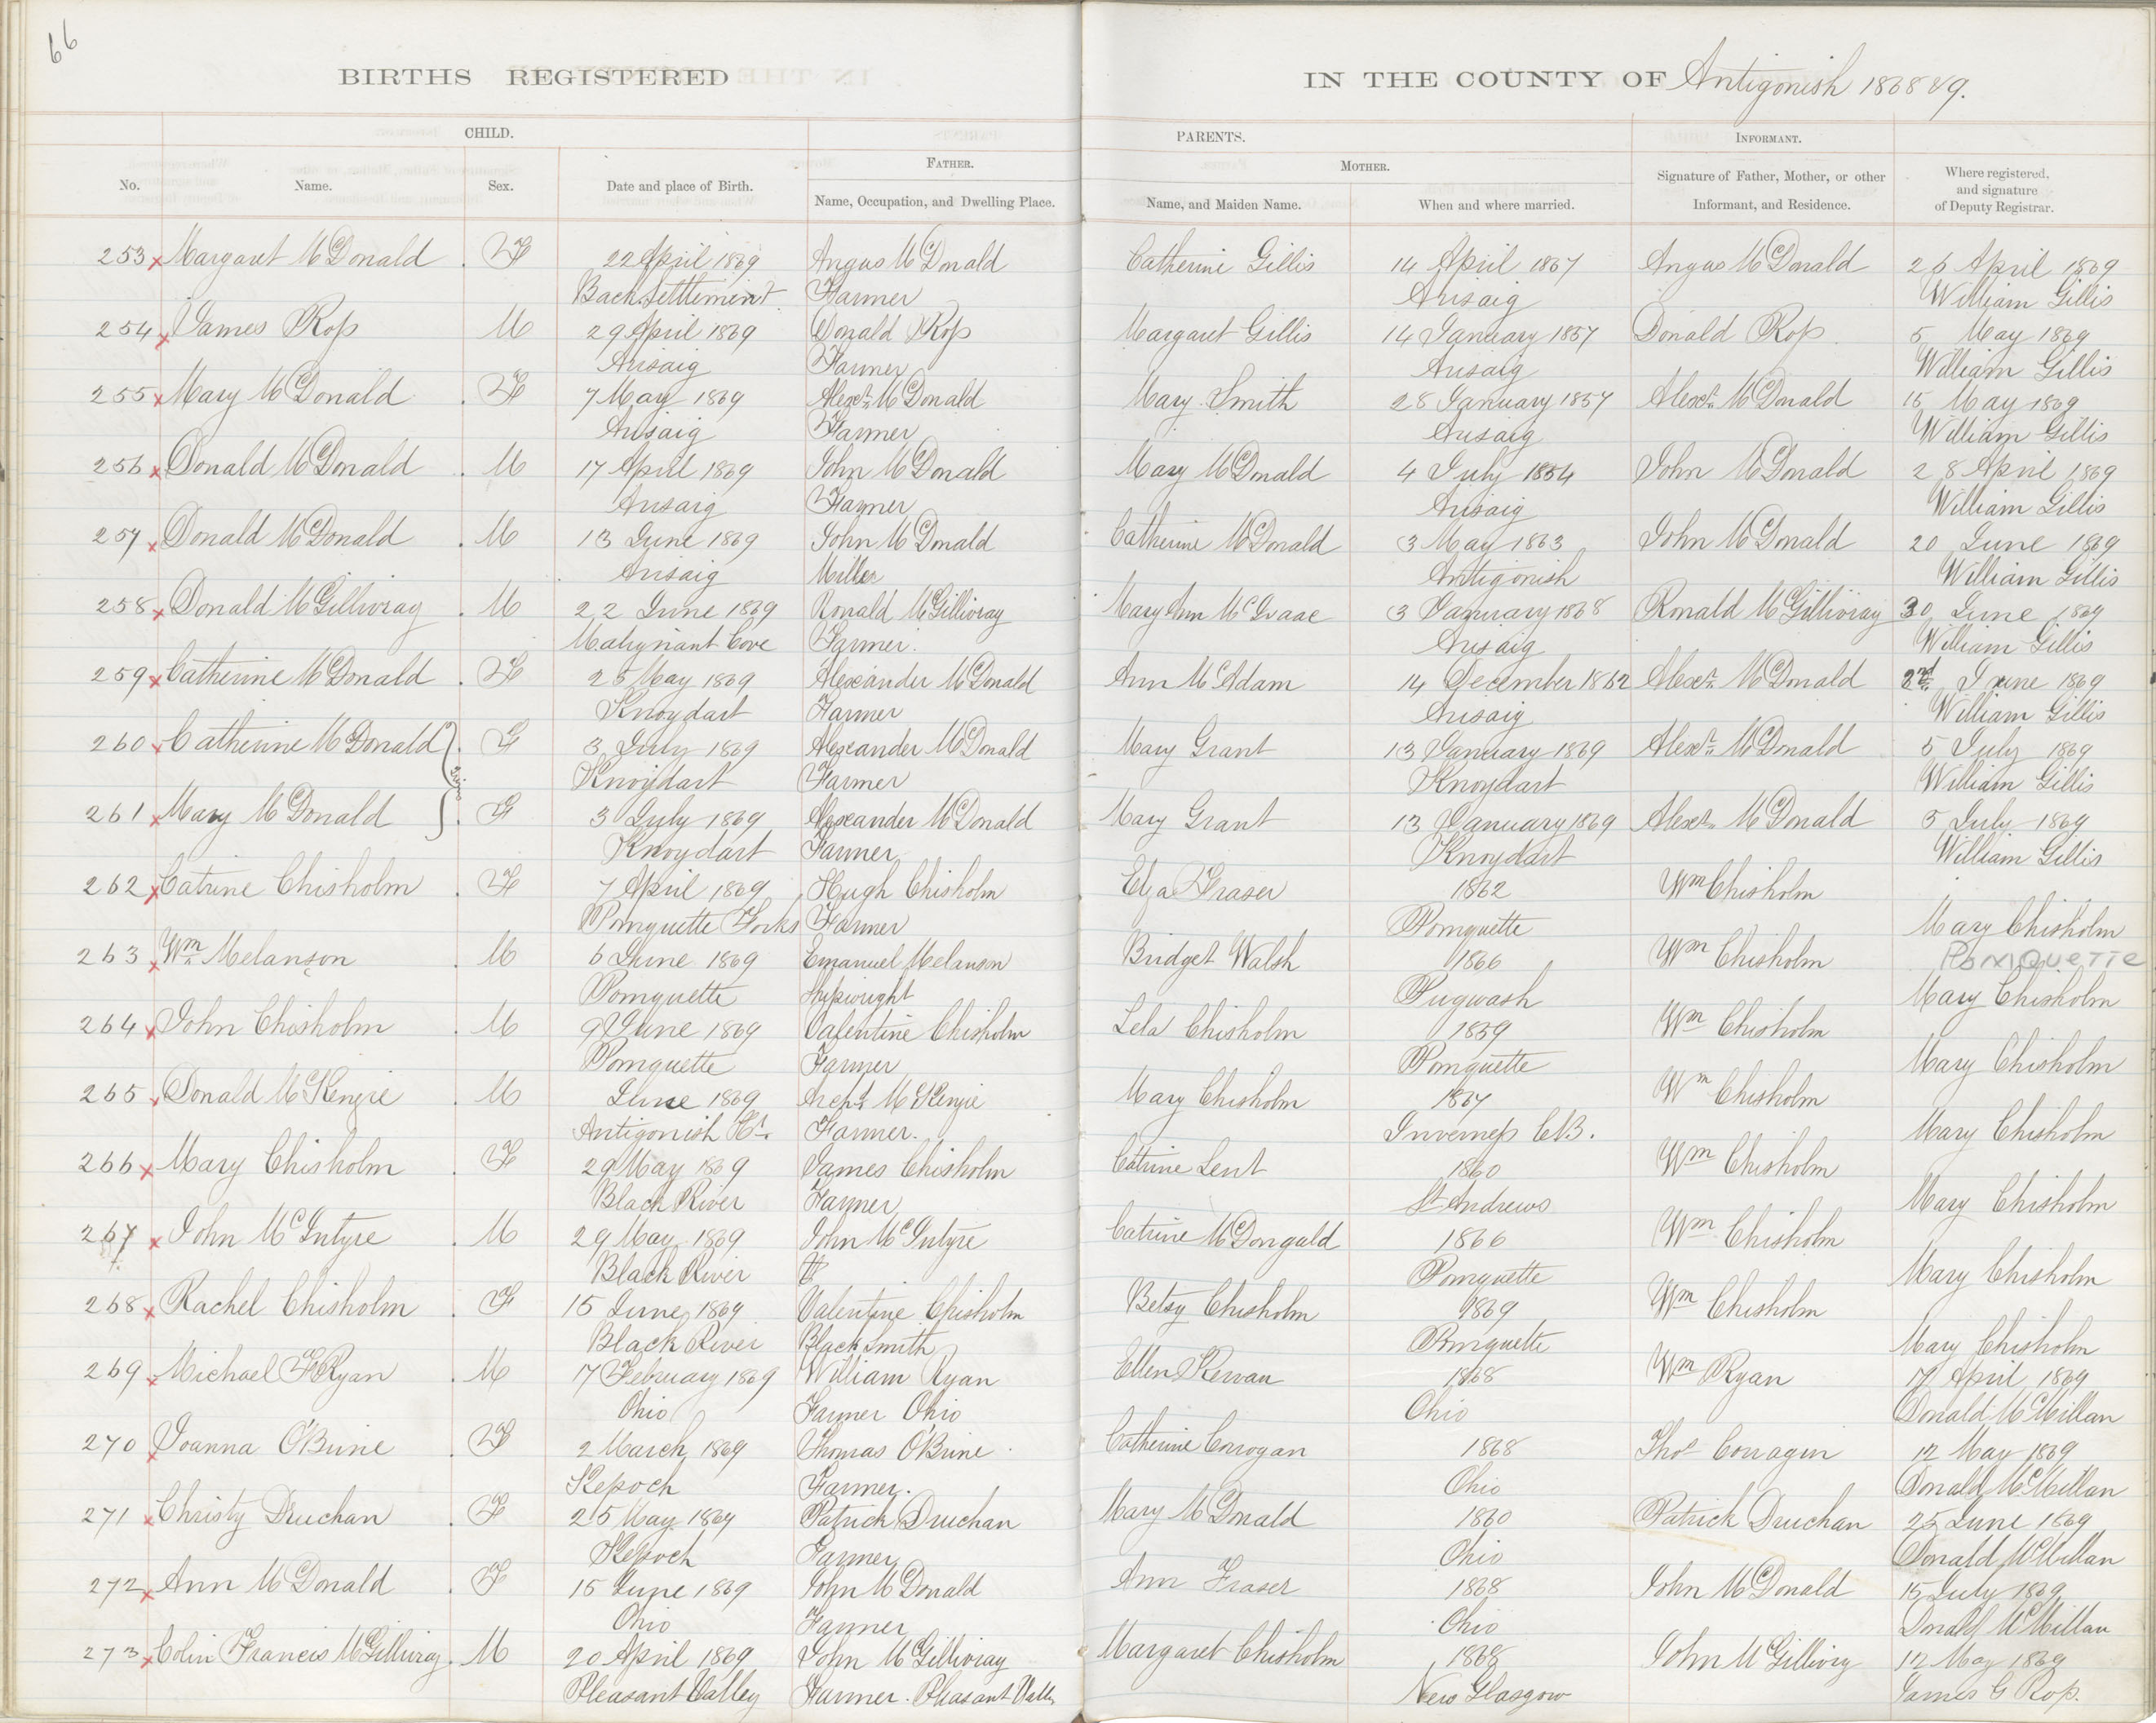 66
BIRTHS REGISTERED IN THE COUNTY OF Antigonish 1868 & 9.
CHILD. PARENTS. INFORMANT.
FATHER. MOTHER.
No. Name. Sex. Date and place of Birth. Name, Occupation, and Dwelling Place. Name, and Maiden Name. When and where married. Signature of Father, Mother, or other Informant, and Residence. Where registered, and signature of Deputy Registrar.
253 Margaret McDonald F 22 April 1869 Angus McDonald Catherine Gillis 14 April 1867 Angus McDonald 26 April 1869
Back Settlement Farmer Arisaig William Gillis
254 James Ross M 29 April 1869 Donald Ross Margaret Gillis 14 January 1857 Donald Ross 5 May 1869
Arisaig Farmer Arisaig William Gillis
255 Mary McDonald F 7 May 1869 Alexr. McDonald Mary Smith 28 January 1857 Alexr. McDonald 15 May 1869
Arisaig Farmer Arisaig William Gillis
256 Donald McDonald M 17 April 1869 John McDonald Mary McDonald 4 July 1854 John McDonald 28 April 1869
Arisaig Farmer Arisaig William Gillis
257 Donald McDonald M 13 June 1869 John McDonald Catherine McDonald 3 May 1863 John McDonald 20 June 1869
Arisaig Miller Antigonish William Gillis
258 Donald McGillivray M 22 June 1869 Ronald McGillivray Mary Ann McIsaac 3 January 1868 Ronald McGillivray 30 June 1869
Malignant Cove Farmer. Arisaig William Gillis
259 Catherine McDonald F 25 May 1869 Alexander McDonald Ann McAdam 14 December 1862 Alexr. McDonald 2nd June 1869
Knoydart Farmer Arisaig William Gillis
260 Catherine McDonald F 3 July 1869 Alexander McDonald Mary Grant 13 January 1869 Alexr. McDonald 5 July 1869
Twins
Knoydart Farmer Knoydart William Gillis
261 Mary McDonald F 3 July 1869 Alexander McDonald Mary Grant 13 January 1869 Alexr. McDonald 5 July 1869
Knoydart Farmer Knoydart William Gillis
262 Catrine Chisholm F 7 April 1869 Hugh Chisholm Eliza Fraser 1862 Wm Chisholm
Pomquette Forks Farmer Pomquette Mary Chisholm
263 Wm. Melanson M 6 June 1869 Emanuel Melanson Bridget Walsh 1866 Wm Chisholm POMQUETTE
Pomquette Shipwright Pugwash Mary Chisholm
264 John Chisholm M 9 June 1869 Valentine Chisholm Lela Chisholm 1859 Wm Chisholm
Pomquette Farmer Pomquette Mary Chisholm
265 Donald McKenzie M June 1869 Archd. McKenzie Mary Chisholm 1867 Wm Chisholm
Antigonish Hr. Farmer. Inverness C.B. Mary Chisholm
266 Mary Chisholm F 29 May 1869 James Chisholm Catrine Lent 1860 Wm Chisholm
Black River Farmer St Andrews Mary Chisholm
267 John McIntyre M 29 May 1869 John McIntyre Catrine McDongald 1866 Wm Chisholm
Black River Pomquette Mary Chisholm
268 Rachel Chisholm F 15 June 1869 Valentine Chisholm Betsy Chisholm 1869 Wm Chisholm
Black River Black Smith Pomquette Mary Chisholm
269 Michael F Ryan M 7 February 1869 William Ryan Ellen Kewan 1868 Wm Ryan 17 April 1869
Ohio Farmer Ohio Ohio Donald McMillan
270 Joanna O'Brine F 2 March 1869 Thomas O'Brine Catherine Corrogan 1868 Thos Corragin 12 May 1869
Kepoch Farmer. Ohio Donald McMillan
271 Christy Druchan F 25 May 1869 Patrick Druchan Mary McDonald 1860 Patrick Druchan 25 June 1869
Kepoch Farmer Ohio Donald McMillan
272 Ann McDonald F 15 June 1869 John McDonald Ann Fraser 1868 John McDonald 15 July 1869
Ohio Farmer Ohio Donald McMillan
273 Colin Francis McGillivray M 20 April 1869 John McGillivray Margaret Chisholm 1868 John McGillivry 12 May 1869
Pleasant Valley Farmer. Pleasant Valley New Glasgow James G Ross.